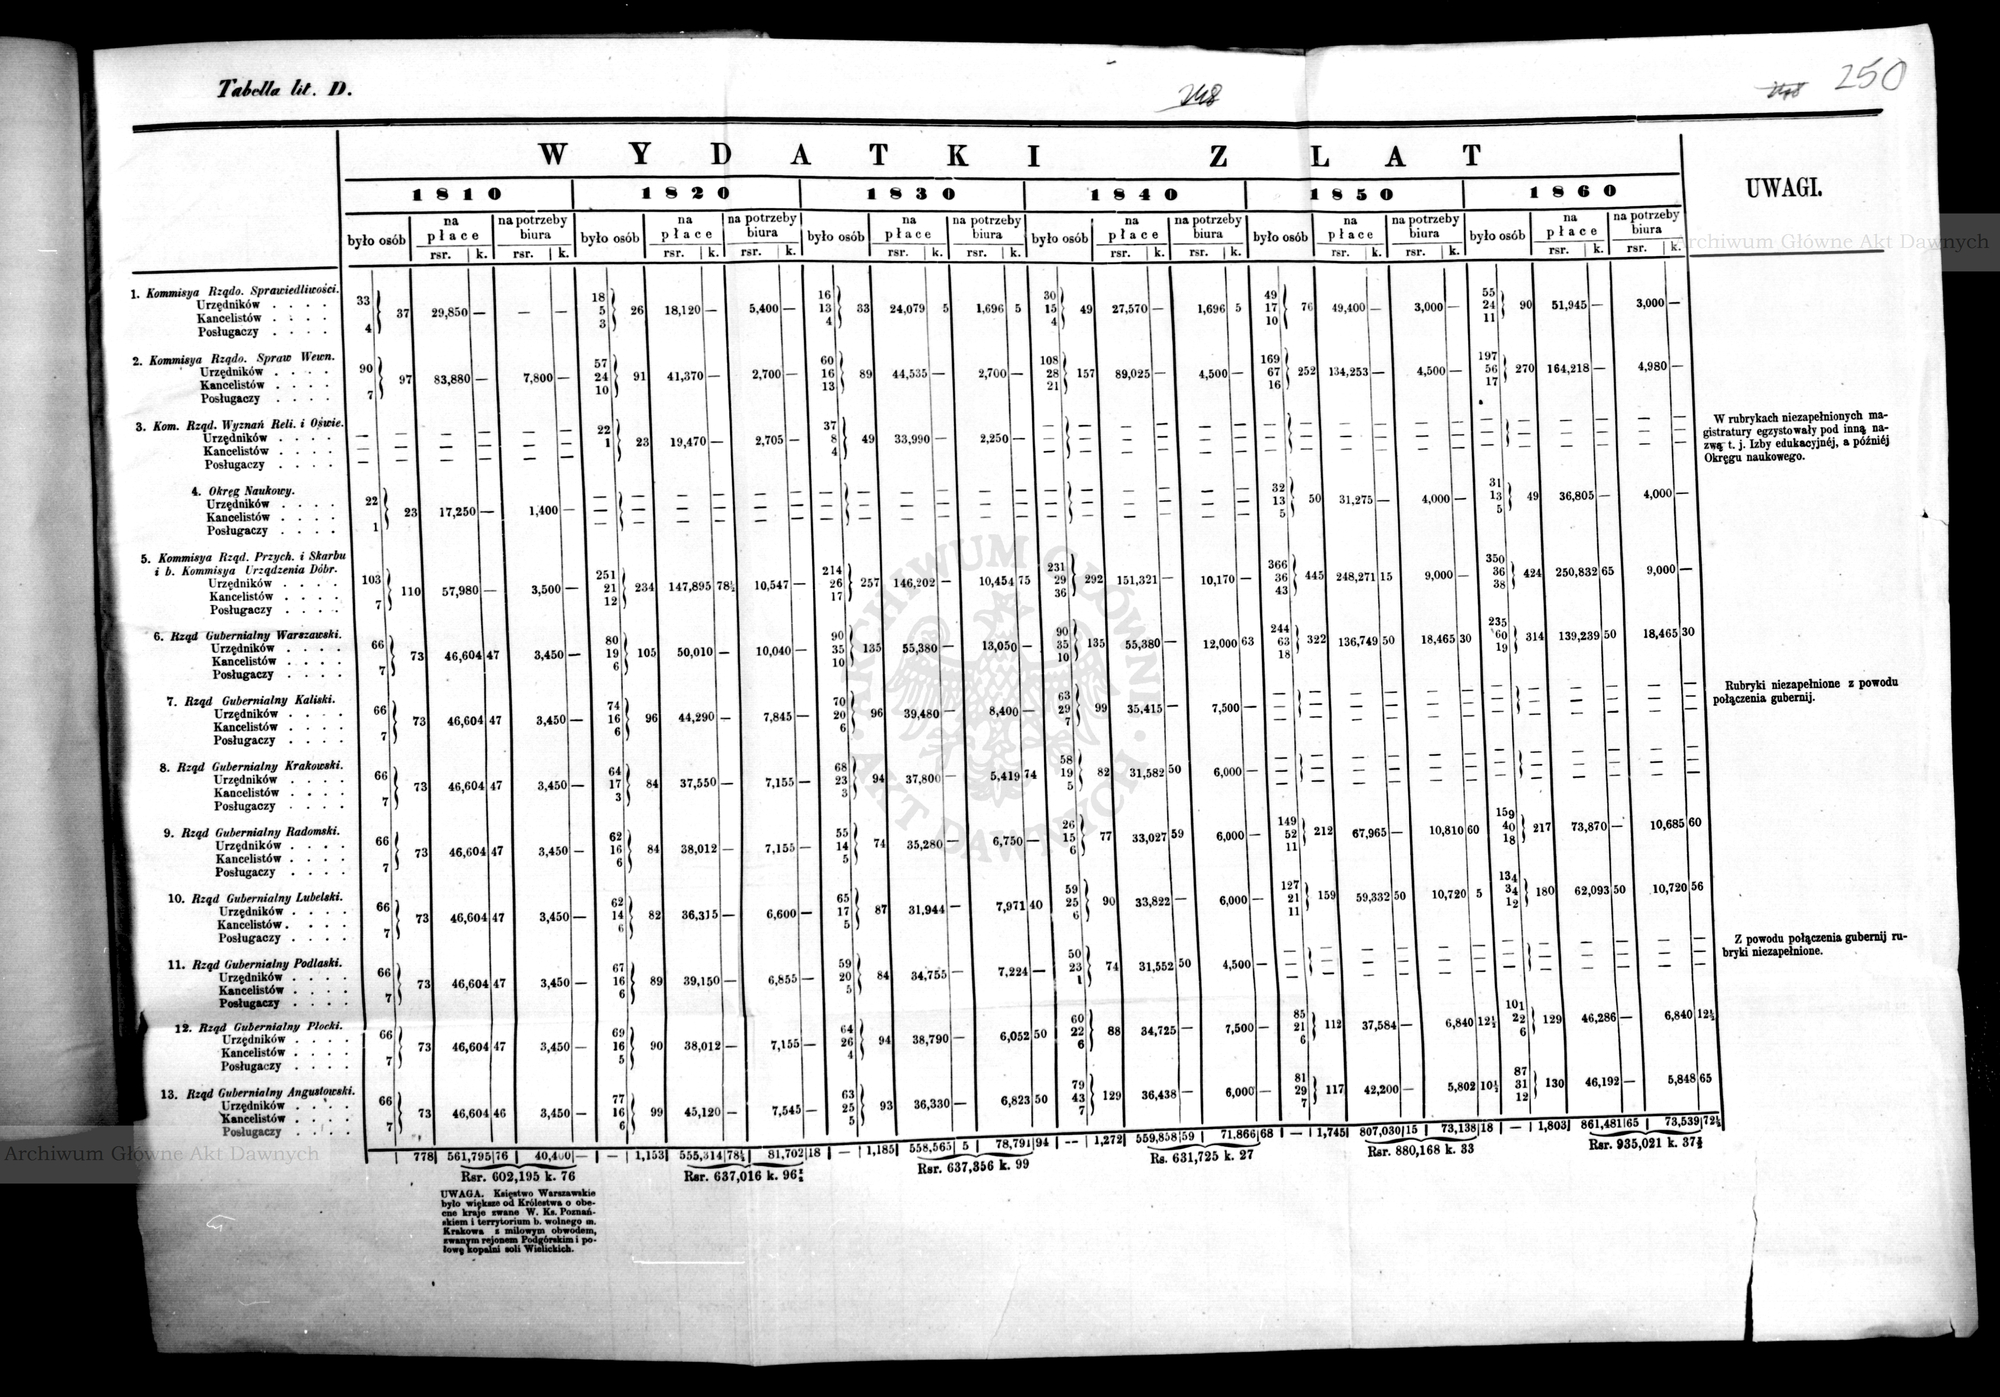 Tabella lit. D.
248
248
250
WYDATKI Z LAT
UWAGI.
1810 1820 1830 1840 1850 1860
było osób na płace na potrzeby biura było osób na płace na potrzeby biura było osób na płace na potrzeby biura było osób na płace na potrzeby biura było osób na płace na potrzeby biura było osób na płace na potrzeby biura
rsr. k. rsr. k. rsr. k. rsr. k. rsr. k. rsr. k. rsr. k. rsr. k. rsr. k. rsr. k. rsr. k. rsr. k.
1. Kommisya Rządo. Sprawiedliwości.
Urzędników . . . . 33 18 16 30 49 55
Kancelistów . . . . 37 29,850 — — — 5 26 18,120 — 5,400 — 13 33 24,079 5 1,696 5 15 49 27,570 — 1,696 5 17 76 49,400 — 3,000 — 24 90 51,945 — 3,000 —
Posługaczy . . . . 4 3 4 4 10 11
2. Kommisya Rządo. Spraw Wewn.
Urzędników . . . . 90 57 60 108 169 197
Kancelistów . . . . 97 83,880 — 7,800 — 24 91 41,370 — 2,700 — 16 89 44,535 — 2,700 — 28 157 89,025 — 4,500 — 67 252 134,253 — 4,500 — 56 270 164,218 — 4,980 —
Posługaczy . . . . 7 10 13 21 16 17
3. Kom. Rząd. Wyznań Reli. i Oświe.
Urzędników . . . . — — — — — 22 37 — — — — — — — — — — — — — — —
Kancelistów . . . . — — — — — 1 23 19,470 — 2,705 — 8 49 33,990 — 2,250 — — — — — — — — — — — — — — — —
Posługaczy . . . . — — — — — 4 — — — — — — — — — — — — — — —
W rubrykach niezapełnionych ma-
gistratury egzystowały pod inną na-
zwą t. j. Izby edukacyjnéj, a późniéj
Okręgu naukowego.
4. Okręg Naukowy.
Urzędników . . . . 22 — — — — — — — — — — — — — — — 32 31
Kancelistów . . . . 23 17,250 — 1,400 — — — — — — — — — — — — — — — — 13 50 31,275 — 4,000 — 13 49 36,805 — 4,000 —
Posługaczy . . . . 1 — — — — — — — — — — — — — — — 5 5
5. Kommisya Rząd. Przych. i Skarbu
i b. Kommisya Urządzenia Dóbr.
Urzędników . . . . 103 251 214 231 366 350
Kancelistów . . . . 110 57,980 — 3,500 — 21 234 147,895 78½ 10,547 — 26 257 146,202 — 10,454 75 29 292 151,321 — 10,170 — 36 445 248,271 15 9,000 — 36 424 250,832 65 9,000 —
Posługaczy . . . . 7 12 17 36 43 38
6. Rząd Gubernialny Warszawski.
Urzędników . . . . 66 80 90 90 244 235
Kancelistów . . . . 73 46,604 47 3,450 — 19 105 50,010 — 10,040 — 35 135 55,380 — 13,050 — 35 135 55,380 — 12,000 63 63 322 136,749 50 18,465 30 60 314 139,239 50 18,465 30
Posługaczy . . . . 7 6 10 10 18 19
7. Rząd Gubernialny Kaliski.
Urzędników . . . . 66 74 70 63 — — — — — — — — — —
Kancelistów . . . . 73 46,604 47 3,450 — 16 96 44,290 — 7,845 — 20 96 39,480 — 8,400 — 29 99 35,415 — 7,500 — — — — — — — — — — —
Posługaczy . . . . 7 6 6 7 — — — — — — — — — —
Rubryki niezapełnione z powodu
połączenia gubernij.
8. Rząd Gubernialny Krakowski.
Urzędników . . . . 66 64 68 58 — — — — — — — — — —
Kancelistów . . . . 73 46,604 47 3,450 — 17 84 37,550 — 7,155 — 23 94 37,800 — 5,419 74 19 82 31,582 50 6,000 — — — — — — — — — — —
Posługaczy . . . . 7 3 3 5 — — — — — — — — — —
9. Rząd Gubernialny Radomski.
Urzędników . . . . 66 62 55 26 149 159
Kancelistów . . . . 73 46,604 47 3,450 — 16 84 38,012 — 7,155 — 14 74 35,280 — 6,750 — 15 77 33,027 59 6,000 — 52 212 67,965 — 10,810 60 40 217 73,870 — 10,685 60
Posługaczy . . . . 7 6 5 6 11 18
10. Rząd Gubernialny Lubelski.
Urzędników . . . . 66 62 65 59 127 134
Kancelistów . . . . 73 46,604 47 3,450 — 14 82 36,315 — 6,600 — 17 87 31,944 — 7,971 40 25 90 33,822 — 6,000 — 21 159 59,332 50 10,720 5 34 180 62,093 50 10,720 56
Posługaczy . . . . 7 6 5 6 11 12
11. Rząd Gubernialny Podlaski.
Urzędników . . . . 66 67 59 50 — — — — — — — — — —
Kancelistów . . . . 73 46,604 47 3,450 — 16 89 39,150 — 6,855 — 20 84 34,755 — 7,224 — 23 74 31,552 50 4,500 — — — — — — — — — — —
Posługaczy . . . . 7 6 5 1 — — — — — — — — — —
Z powodu połączenia gubernij ru-
bryki niezapełnione.
12. Rząd Gubernialny Płocki.
Urzędników . . . . 66 69 64 60 85 101
Kancelistów . . . . 73 46,604 47 3,450 — 16 90 38,012 — 7,155 — 26 94 38,790 — 6,052 50 22 88 34,725 — 7,500 — 21 112 37,584 — 6,840 12½ 22 129 46,286 — 6,840 12½
Posługaczy . . . . 7 5 4 6 6 6
13. Rząd Gubernialny Angustowski.
Urzędników . . . . 66 77 63 79 81 87
Kancelistów . . . . 73 46,604 46 3,450 — 16 99 45,120 — 7,545 — 25 93 36,330 — 6,823 50 43 129 36,438 — 6,000 — 29 117 42,200 — 5,802 10½ 31 130 46,192 — 5,848 65
Posługaczy . . . . 7 6 5 7 7 12
778 561,795 76 40,400 — — 1,153 555,314 78½ 81,702 18 — 1,185 558,565 5 78,791 94 — 1,272 559,858 59 71,866 68 — 1,745 807,030 15 73,138 18 — 1,803 861,481 65 73,539 72½
Rsr. 602,195 k. 76 Rsr. 637,016 k. 96½ Rsr. 637,356 k. 99 Rs. 631,725 k. 27 Rsr. 880,168 k. 33 Rsr. 935,021 k. 37½
UWAGA. Księstwo Warszawskie
było większe od Królestwa o obe-
cne kraje zwane W. Ks. Poznań-
skiem i terrytorium b. wolnego m.
Krakowa z milowym obwodem,
zwanym rejonem Podgórskim i po-
łowę kopalni soli Wielickich.
Archiwum Główne Akt Dawnych
Archiwum Główne Akt Dawnych
ARCHIWUM GŁÓWNE AKT DAWNYCH